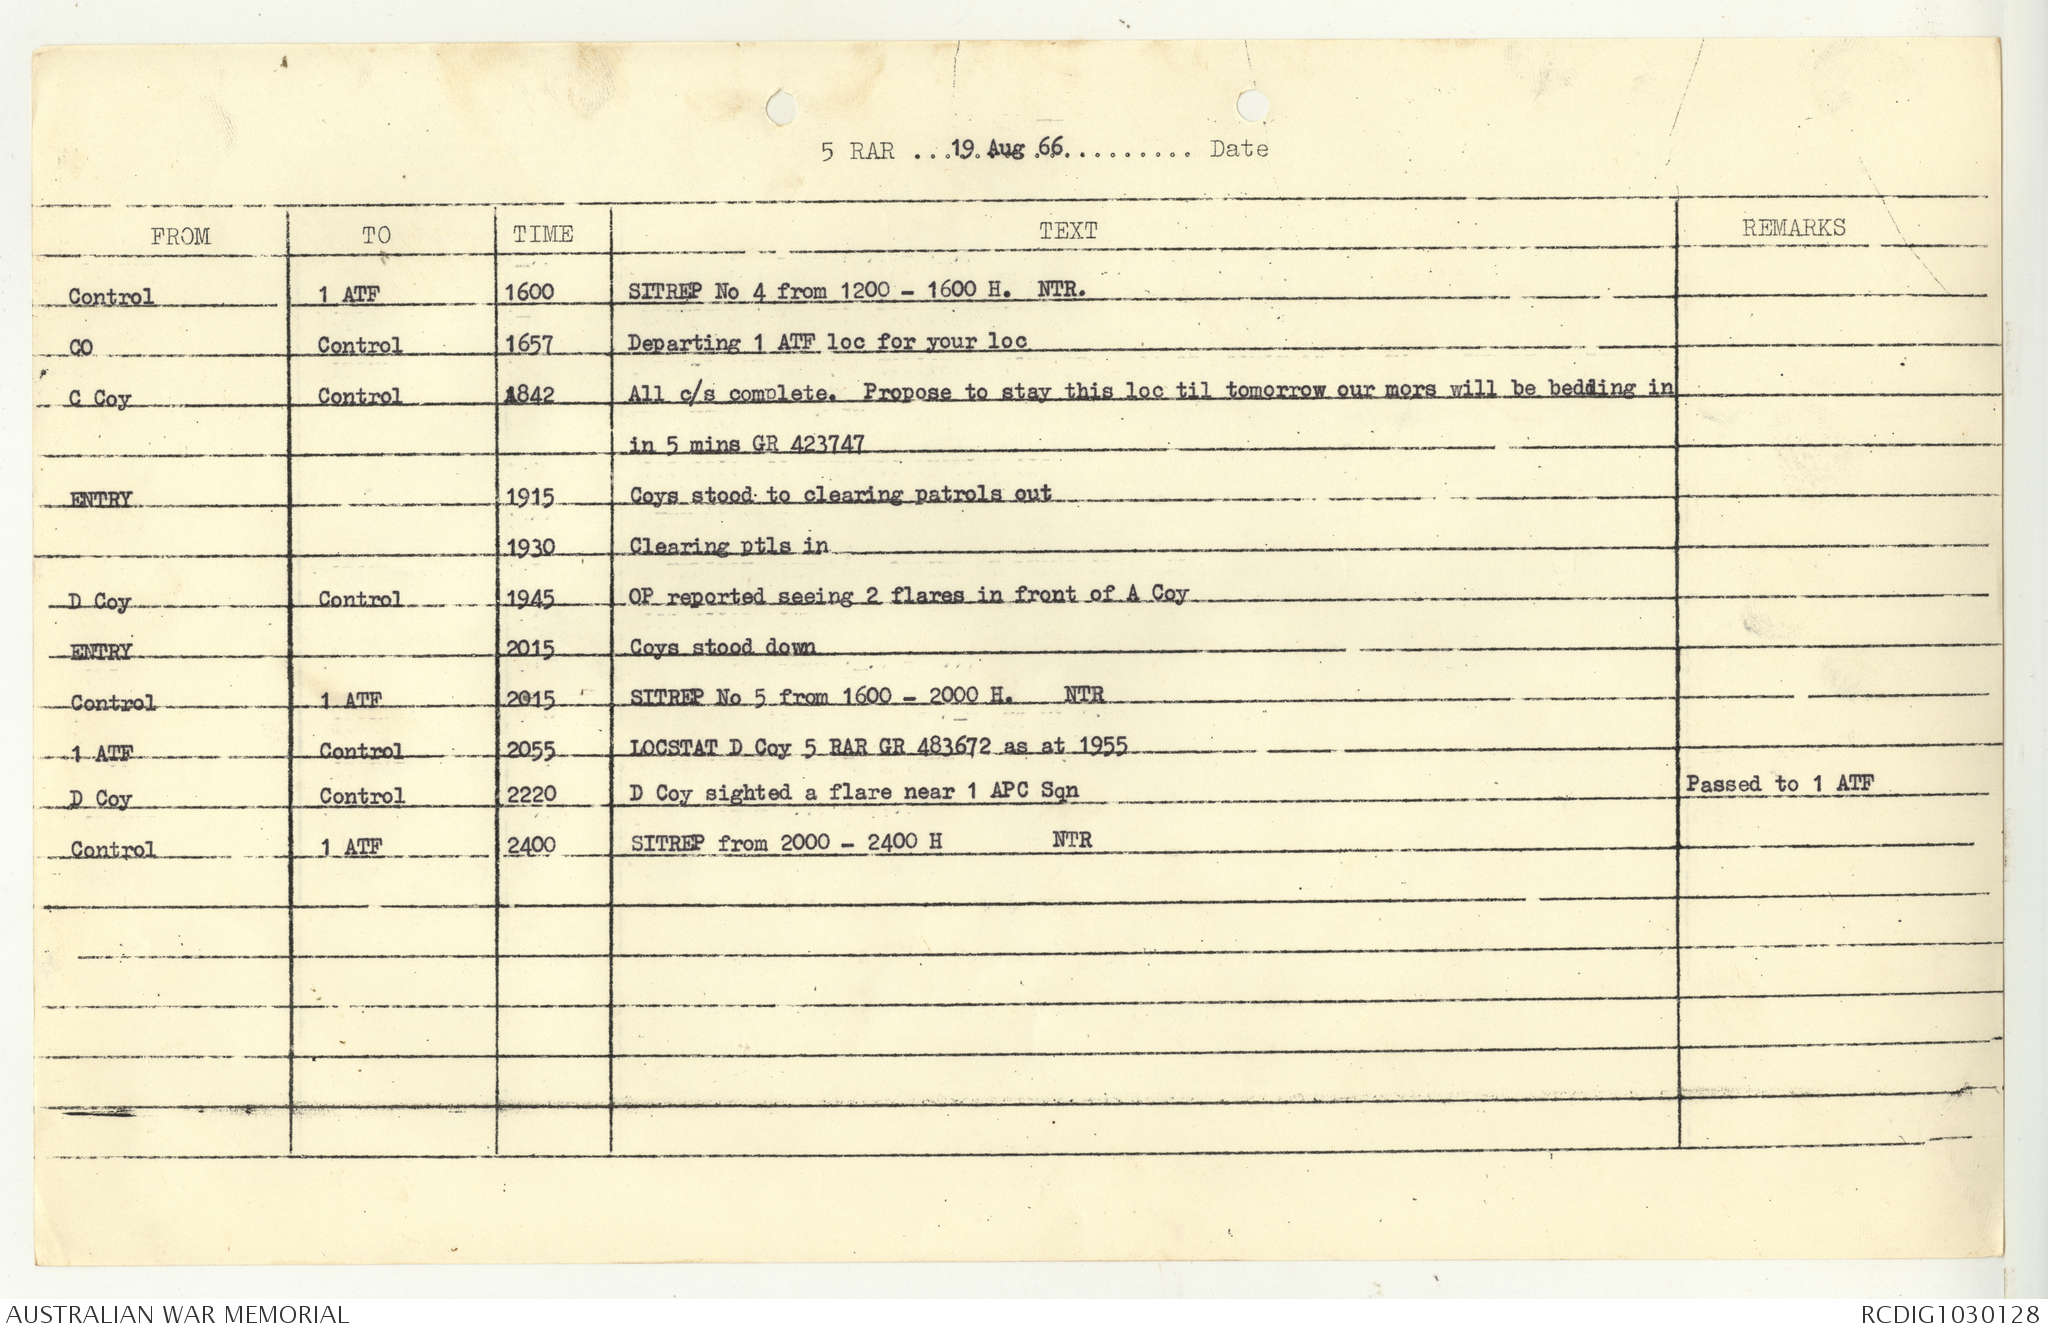 5 RAR ...19 Aug 66.......... Date
FROM TO TIME TEXT REMARKS
Control 1 ATF 1600 SITREP No 4 from 1200 - 1600 H. NTR.
CO Control 1657 Departing 1 ATF loc for your loc
C Coy Control 1842 All c/s complete. Propose to stay this loc til tomorrow our mors will be bedding in
in 5 mins GR 423747
ENTRY 1915 Coys stood to clearing patrols out
1930 Clearing ptls in
D Coy Control 1945 OP reported seeing 2 flares in front of A Coy
ENTRY 2015 Coys stood down
Control 1 ATF 2015 SITREP No 5 from 1600 - 2000 H. NTR
1 ATF Control 2055 LOCSTAT D Coy 5 RAR GR 483672 as at 1955
D Coy Control 2220 D Coy sighted a flare near 1 APC Sqn Passed to 1 ATF
Control 1 ATF 2400 SITREP from 2000 - 2400 H NTR
AUSTRALIAN WAR MEMORIAL RCDIG1030128